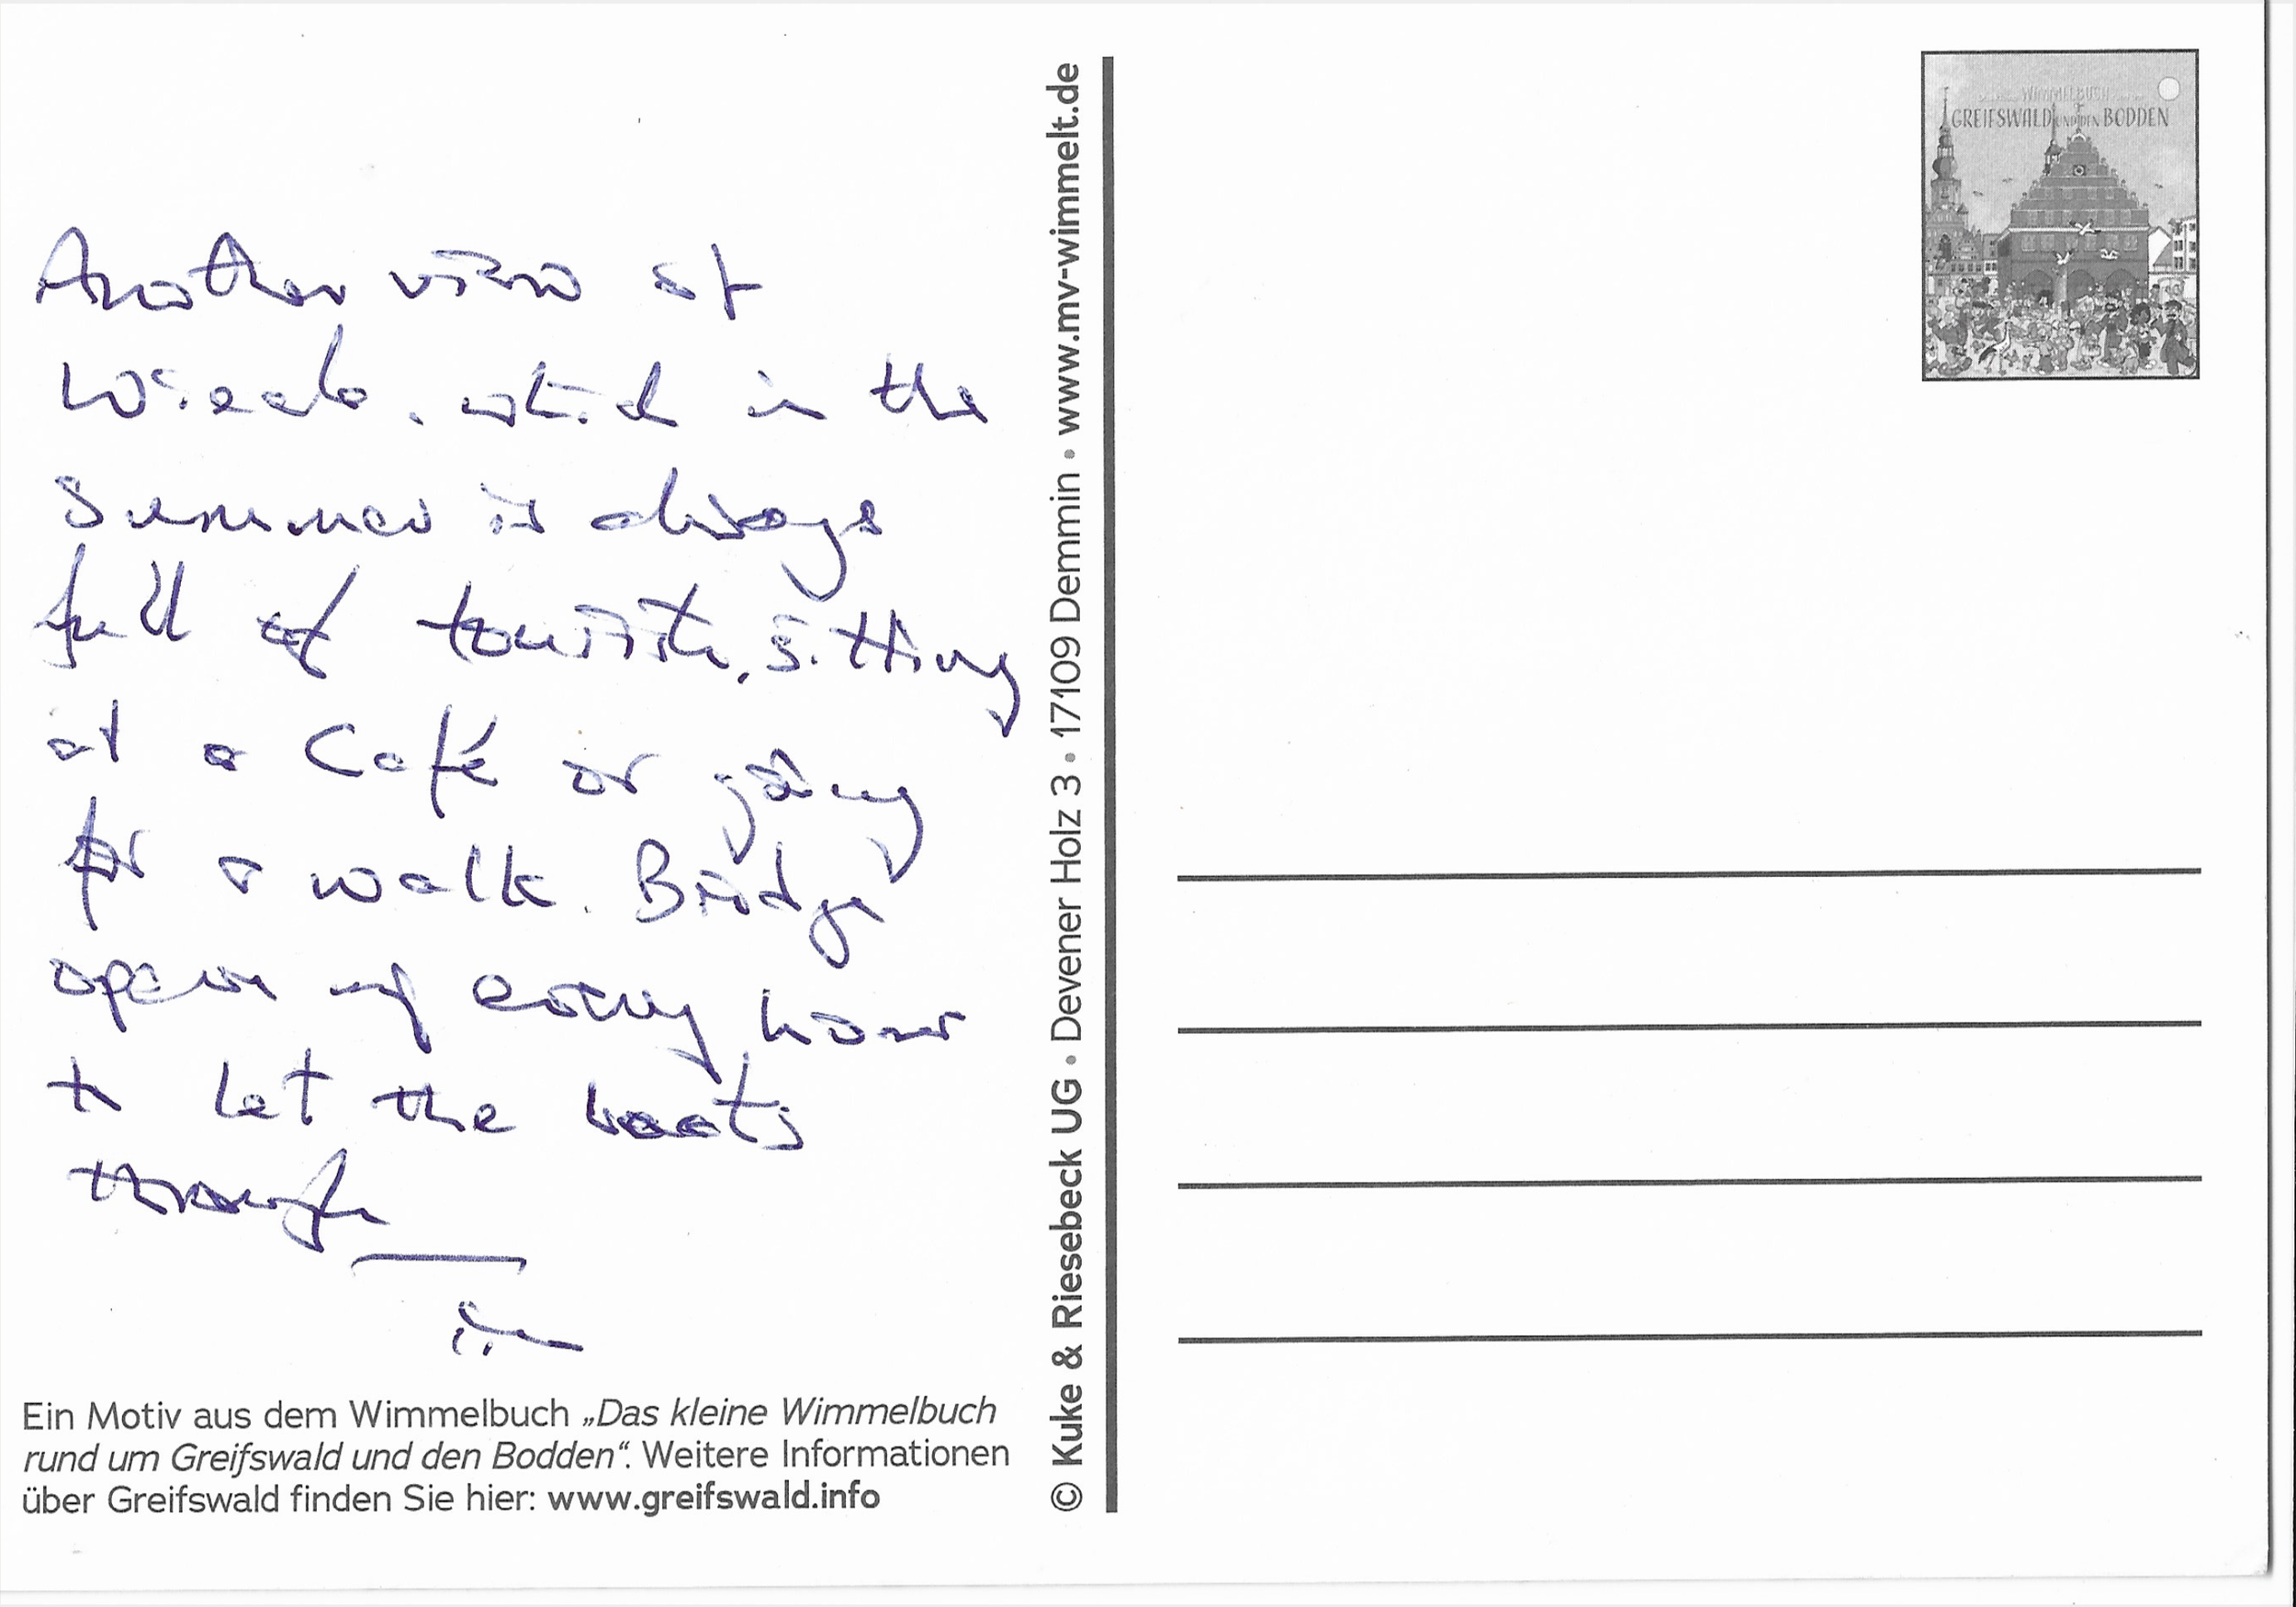 Another view of
Wieck, which in the
summer is always
full of tourists, sitting
at a Café or going
for a walk. Bridge
open up every hour
to let the boats
through
Ein Motiv aus dem Wimmelbuch „Das kleine Wimmelbuch
rund um Greifswald und den Bodden“. Weitere Informationen
über Greifswald finden Sie hier: www.greifswald.info
© Kuke & Riesebeck UG • Devener Holz 3 • 17109 Demmin • www.mv-wimmelt.de
WIMMELBUCH
GREIFSWALD UND DEN BODDEN